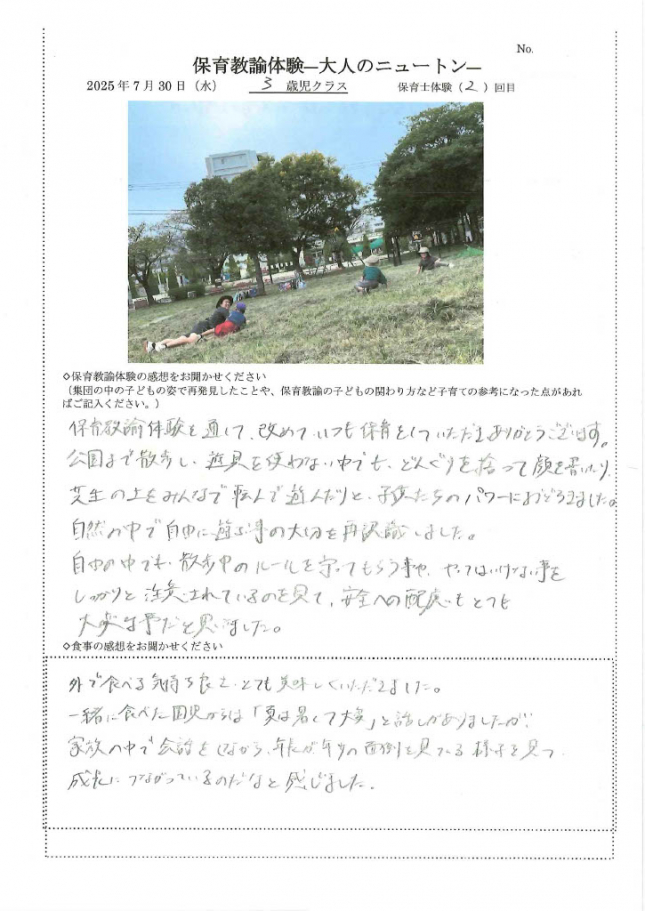 No.
保育教諭体験―大人のニュートン―
2025年7月30日（水） 3 歳児クラス 保育士体験（2）回目
◇保育教諭体験の感想をお聞かせください
（集団の中の子どもの姿で再発見したことや、保育教諭の子どもの関わり方など子育ての参考になった点があれ
ばご記入ください。）
保育教諭体験を通して、改めて、いつも保育をしていただきありがとうございます。
公園まで散歩し、遊具を使わない中でも、どんぐりを拾って顔を書いたり、
芝生の上をみんなで転んで遊んだりと、子供たちのパワーにおどろきました。
自然の中で自由に遊ぶ事の大切を再認識しました。
自由の中でも、散歩中のルールを守ってもらう事や、やってはいけない事を
しっかりと注意されているのを見て、安全への配慮もとても
大変な事だと思いました。
◇食事の感想をお聞かせください
外で食べる気持ち良さ、とても美味しくいただきました。
一緒に食べた からは「夏は暑くて大変」と話しがありましたが、
家族の中で会話をしながら、年長が年少の面倒を見ている様子を見て、
成長につながっているのだなと感じました。